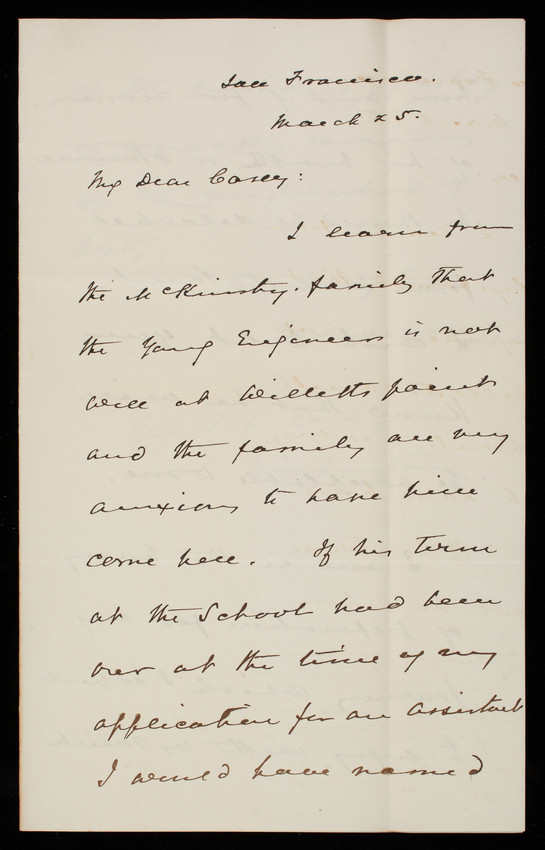 San Francisco.
March 25.
My Dear Casey:
I learn from
the McKinstry family that
the Young Engineer is not
well at Willetts point
and the family are very
anxious to have him
come here. If his term
at the School had been
over at the time of my
application for an assistant
I would have named